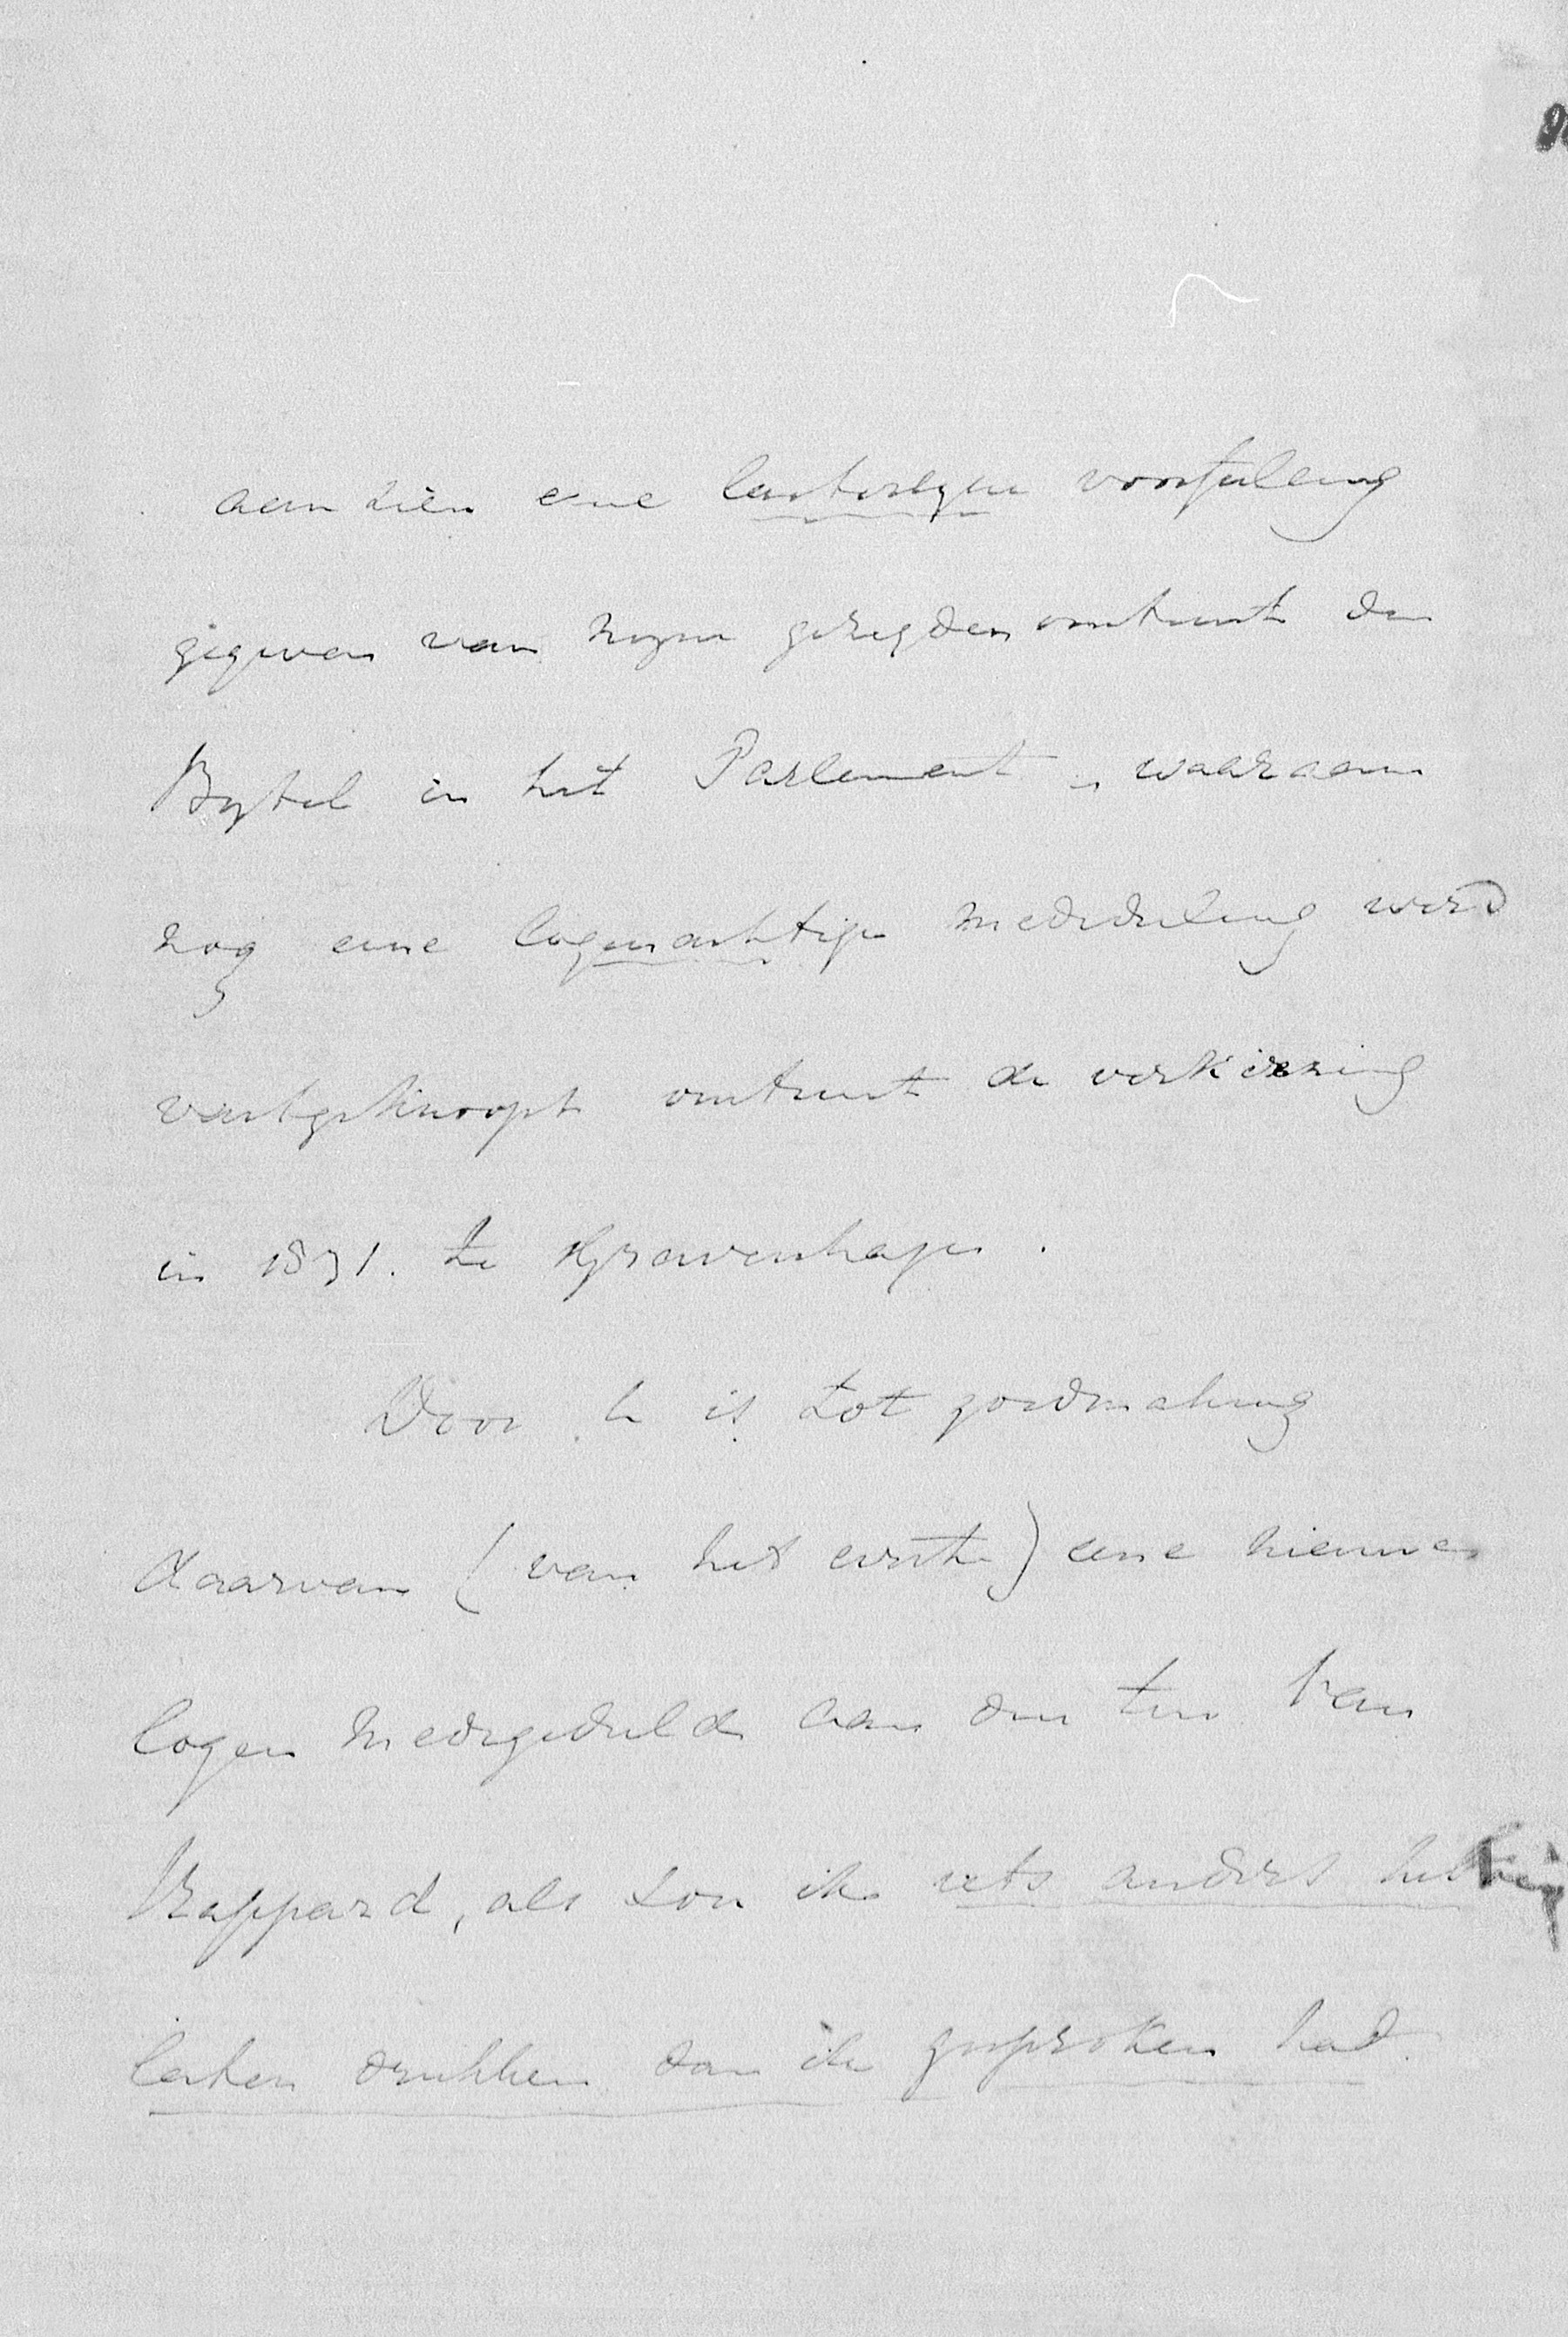 aanzien eene lasterlyke voorstelling
gegeven van myne gezegden omtrent den
Bybel in het Parlement, waaraan
nog eene logenachtige mededeeling werd
vastgeknoopt omtrent de verkiezing
in 1871. te 'sGravenhage.
Door L is tot goedmaking
daarvan (van het eerste) eene nieuwe
logen medegedeeld aan den Heer van
Rappard, als zou ik iets anders hebben
laten drukken dan ik gesproken had.